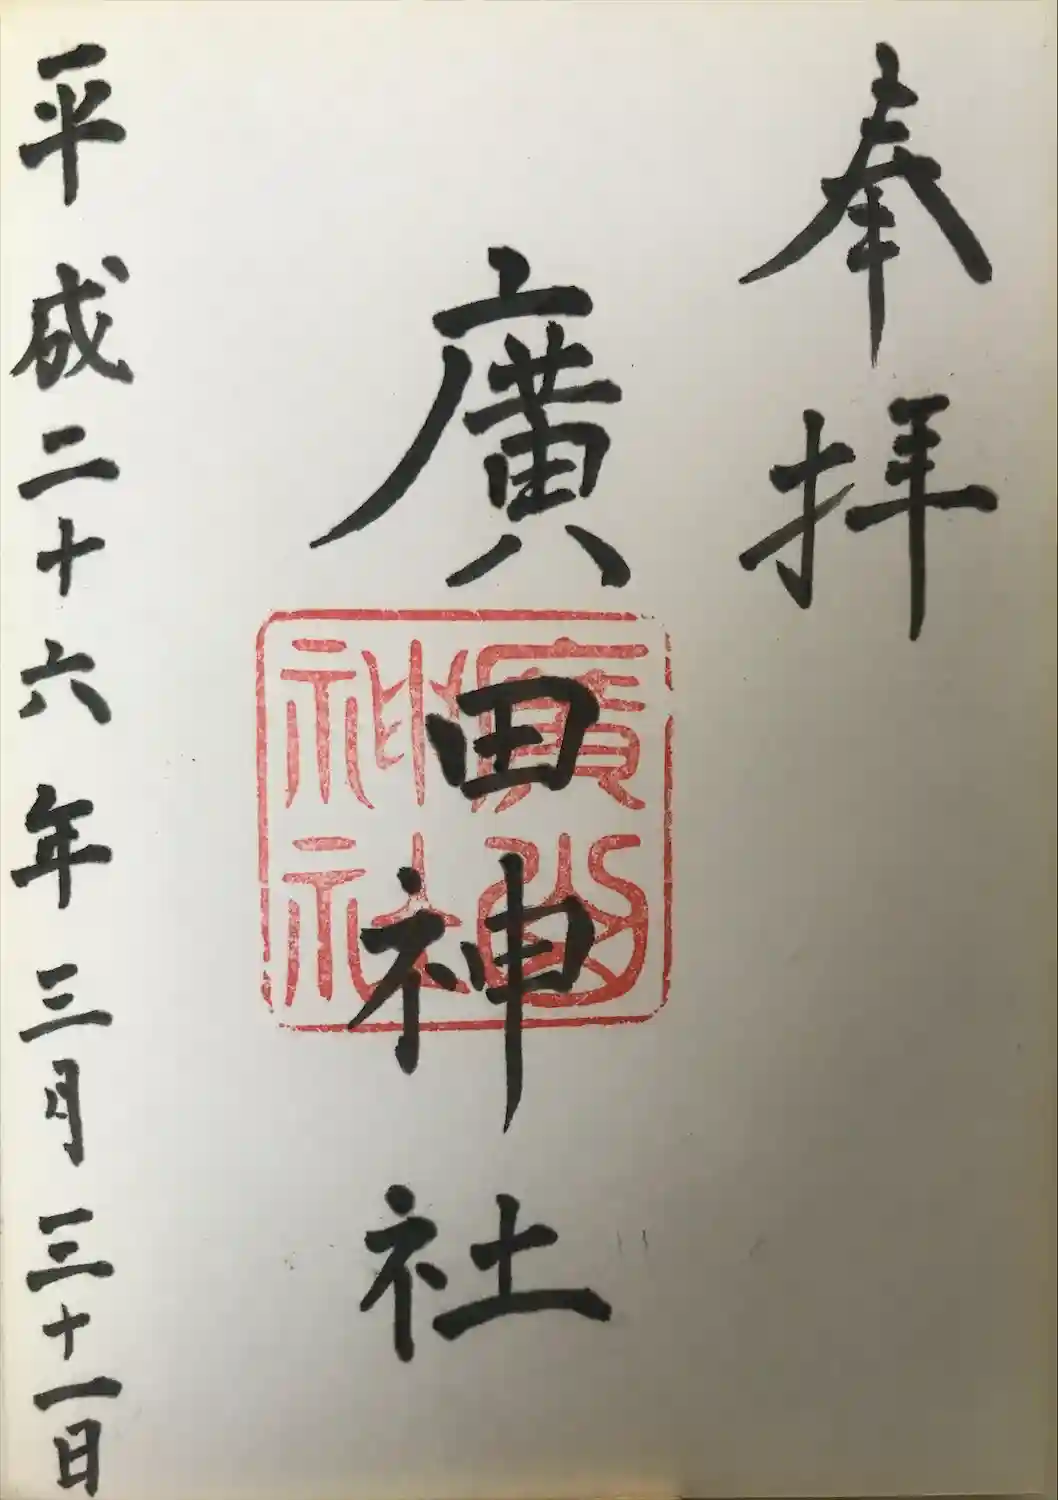 奉拝
廣田神社
廣田
神社
平成二十六年三月三十一日